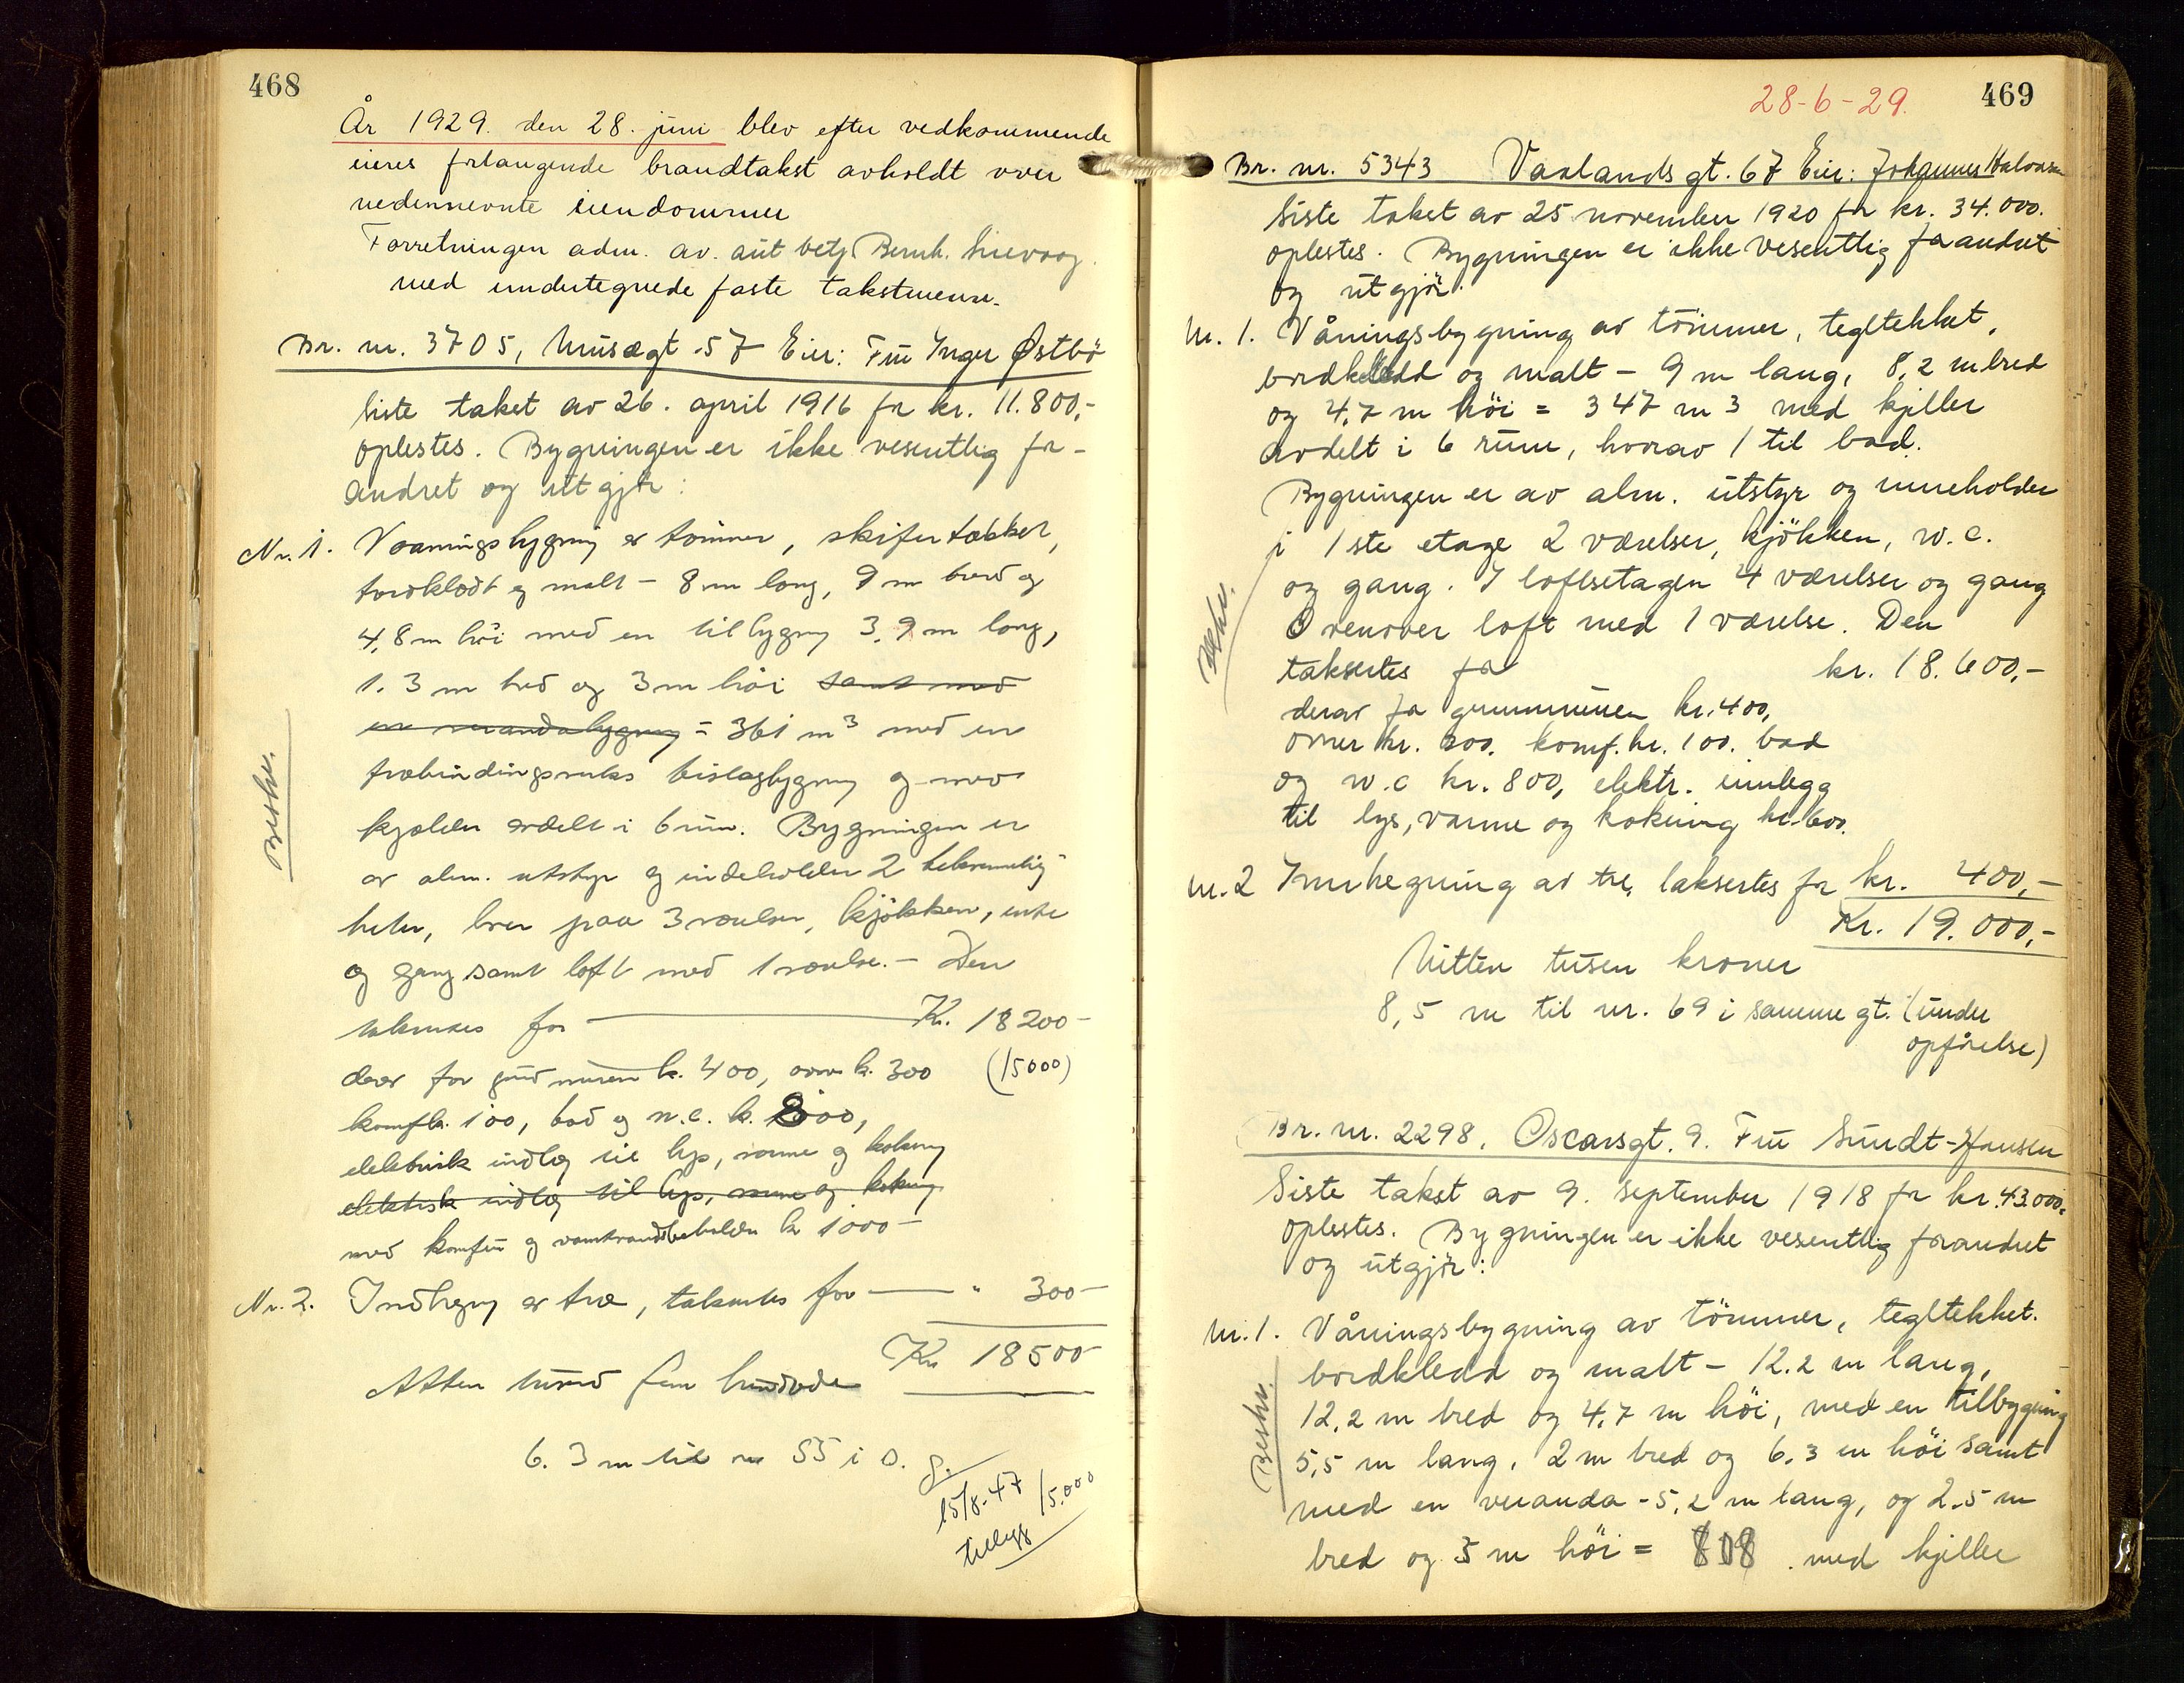 468
År 1929. den 28. juni blev efter vedkommende
eieres forlangende brandtakst avholdt over
nedennevnte eiendommer
Forretningen adm. av. aut betj Bernh.
med undertegnede faste takstmenn.
Br. nr. 3705, Musægt. 57 Eier: Fru Inger Østbö
Siste takst av 26. april 1916 for kr. 11.800,-
oplestes. Bygningen er ikke vesentlig for-
andret og utgjör:
Nr. 1. Vaaningsbygning av tömmer, skifertækket,
bordklædt og malt - 8 m lang, 9 m bred og
4,8 m höi med en tilbygning 3,9 m lang,
1.3 m bred og 3 m höi samt med
en verandabygning = 361 m3 med en
træbindingsverks bislagbygning og med
kjælder avdelt i 6 rum. Bygningen er
av alm. utstyr og indeholder 2 bekvemmelig-
heter, hver paa 3 værelser, kjökken, entre
og gang samt loft med 1 værelse. - Den
takseres for Kr. 18200-
derav for grundmuren k. 400, ovner k. 300 (15000)
komfk. 100, bad og w.c. k. 800,
elektrisk indlæg til lys, varme og kokning
elektrisk indlæg til lys, varme og kokning
med komfur og varmtvandsbeholder kr 1000-
Beskr.
Nr. 2. Indhegning av træ, takseres for - " 300-
Kr 18500
Atten tusind fem hundrede
6.3 m til nr 55 i s. g.
15/8-47 15.000
tillegg
28-6-29. 469
Br. nr. 5343 Vaalandsgt. 67 Eier: Johannes Halvorsen
Siste takst av 25 november 1920 for kr. 34.000.
oplestes. Bygningen er ikke vesentlig forandret
og utgjör.
Nr. 1. Våningsbygning av tömmer, tegltekket,
bordkledd og malt - 9 m lang, 8,2 m bred
og 4,7 m höi = 347 m3 med kjeller
avdelt i 6 rum, hvorav 1 til bad.
Bygningen er av alm. utstyr og inneholder
i 1ste etage 2 værelser, kjökken, w.c.
og gang. I loftsetagen 4 værelser og gang
Ovenover loft med 1 værelse. Den
taksertes for kr. 18.600,-
derav for grunnmuren kr. 400,
ovner kr. 200. komf. kr. 100. bad
og w.c kr. 800, elektr. innlegg
til lys, varme og kokning kr. 600.
Beskr.
Nr. 2 Innhegning av tre, taksertes for kr. 400,-
Kr. 19.000,-
Nitten tusen kroner
8,5 m til nr. 69 i samme gt. (under
opförelse)
Br. nr. 2298, Oscarsgt. 9. Fru Sundt-Hansen
Siste takst av 9. september 1918 for kr. 43.000,
oplestes. Bygningen er ikke vesentlig forandret
og utgjör:
Nr. 1. Våningsbygning av tömmer, tegltekket.
bordkledd og malt - 12.2 m lang,
12,2 m bred og 4,7 m höi, med en tilbygning
5,5 m lang, 2 m bred og 6,3 m höi samt
med en veranda - 5,2 m lang, og 2.5 m
bred og 3 m höi = 808 med kjeller
Beskr.